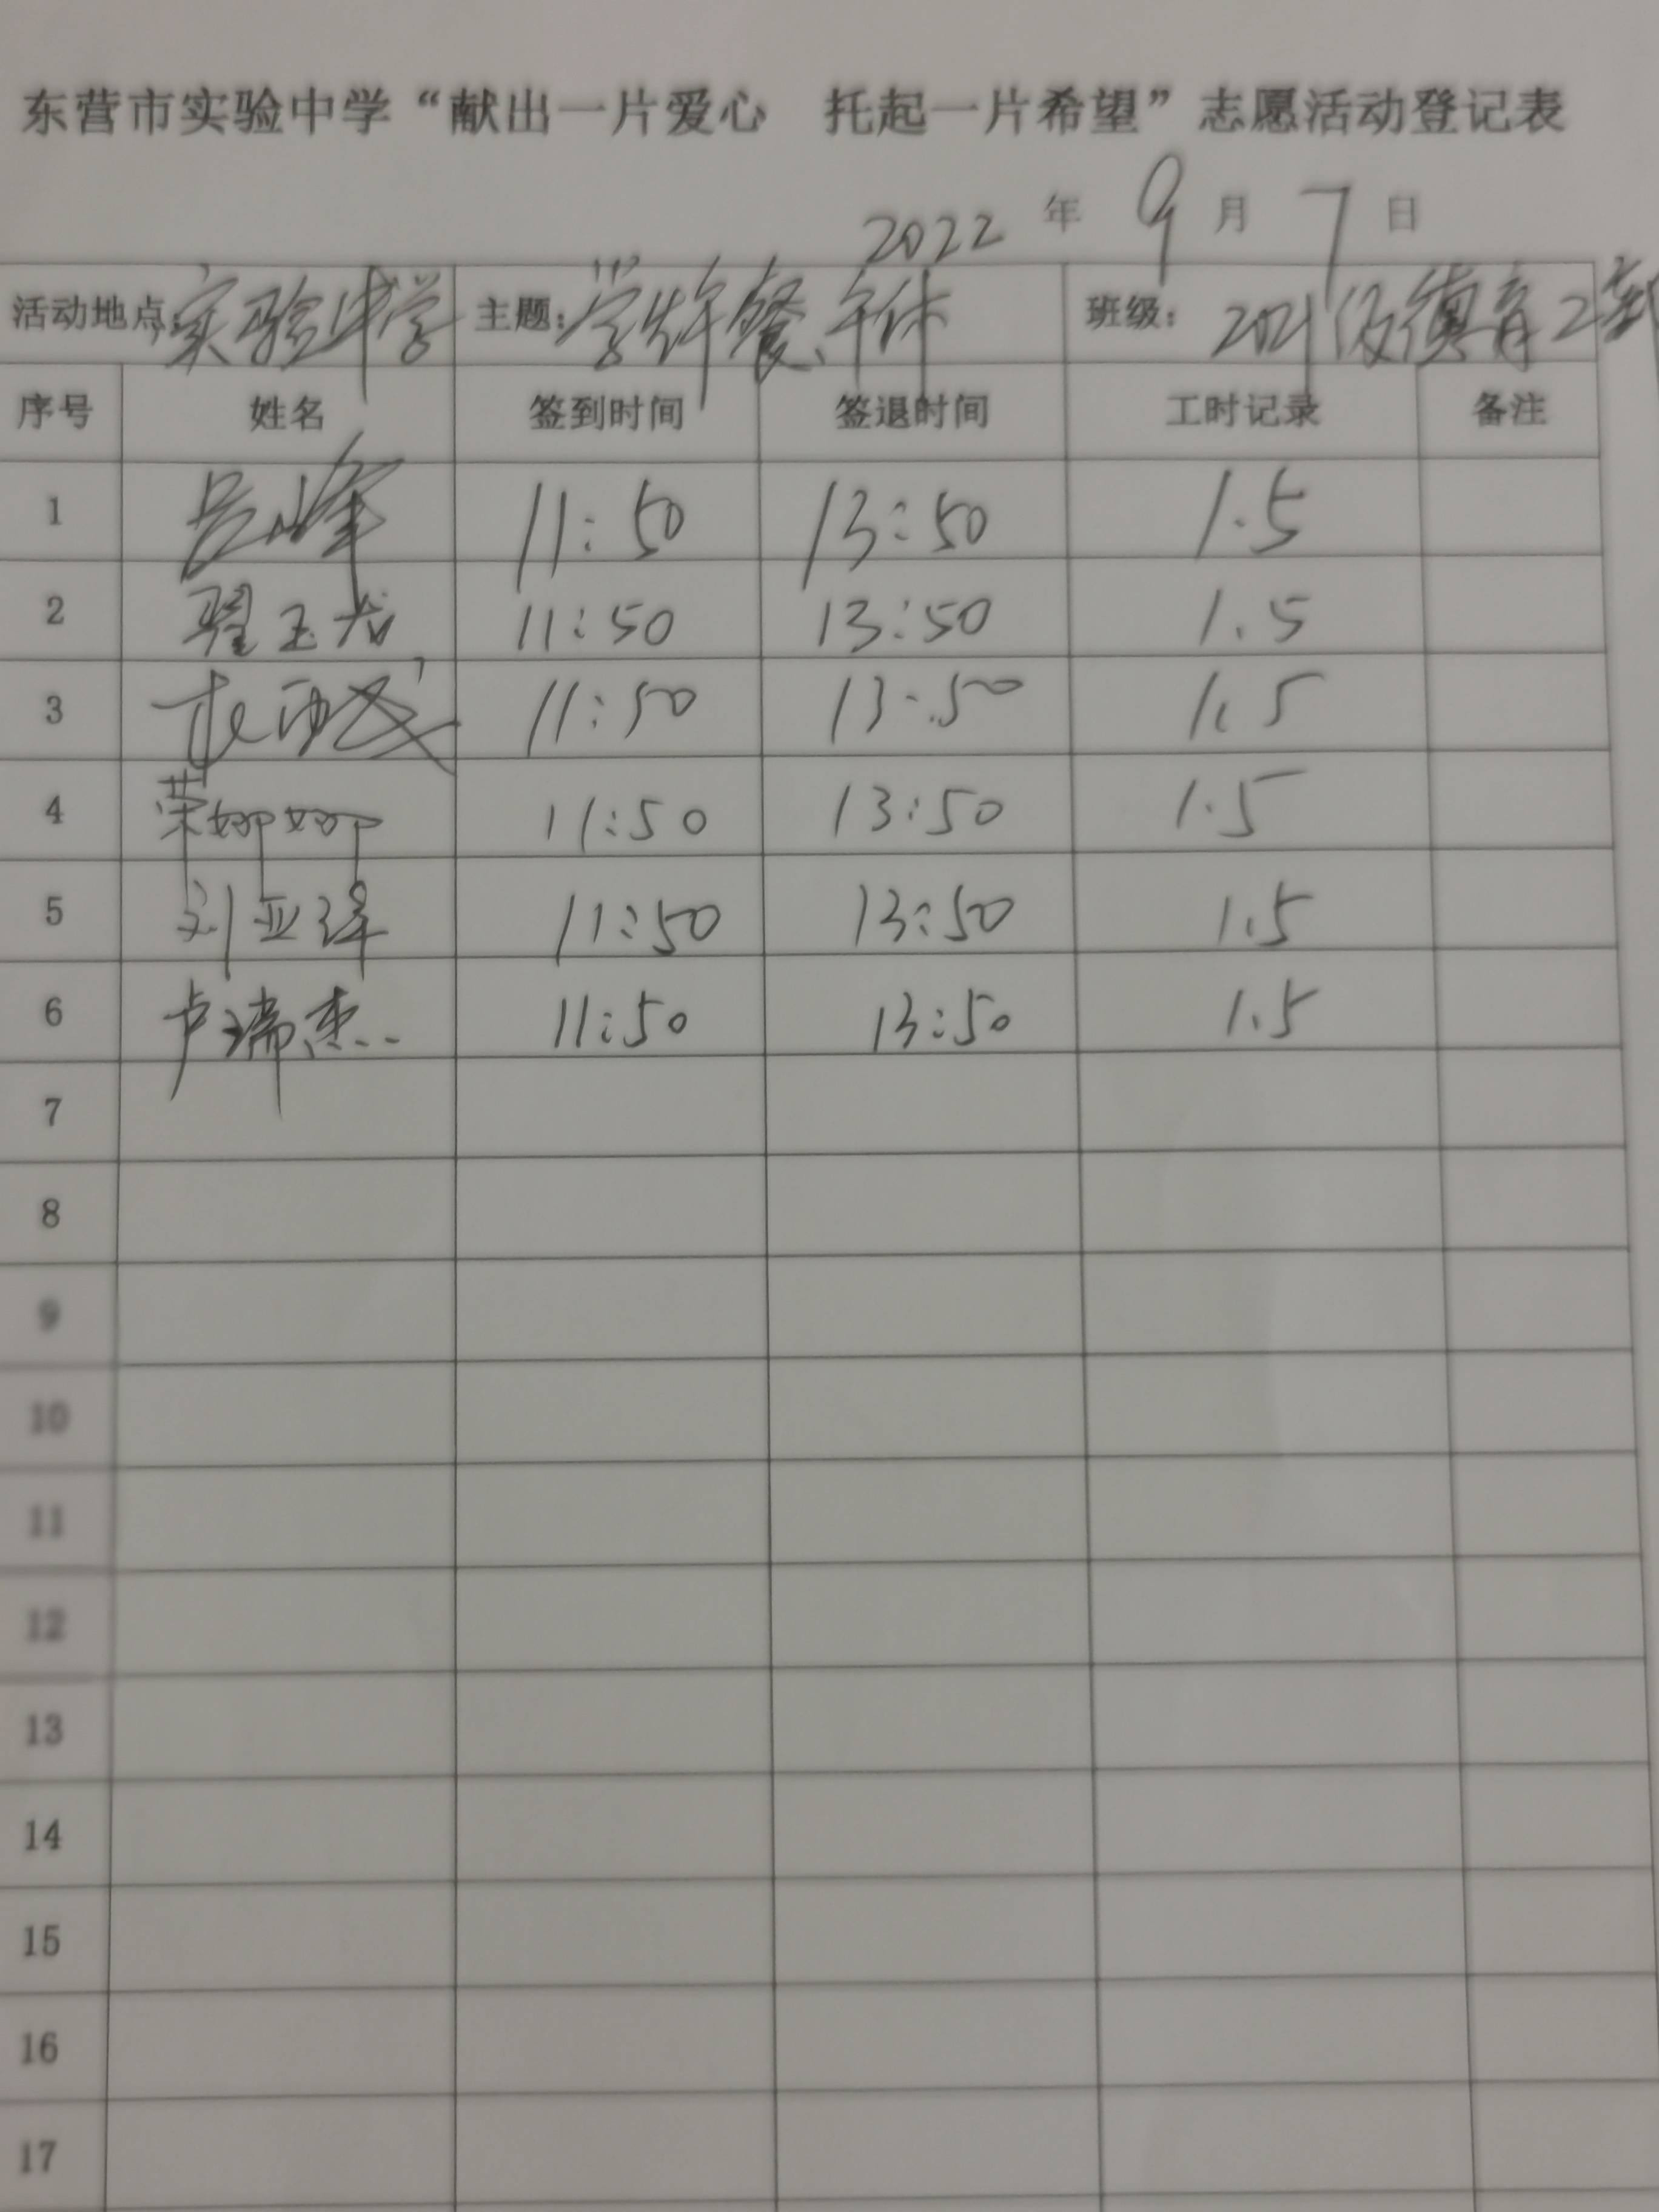 东营市实验中学“献出一片爱心 托起一片希望”志愿活动登记表
2022 年 9 月 7 日
活动地点:实验中学 主题:学生午餐、午休 班级: 2021级慎育2部
序号 姓名 签到时间 签退时间 工时记录 备注
1 吕峰 11:50 13:50 1.5
2 翟玉龙 11:50 13:50 1.5
3 11:50 13:50 1.5
4 荣娜娜 11:50 13:50 1.5
5 刘亚泽 11:50 13:50 1.5
6 卢瑞杰 11:50 13:50 1.5
7
8
9
10
11
12
13
14
15
16
17